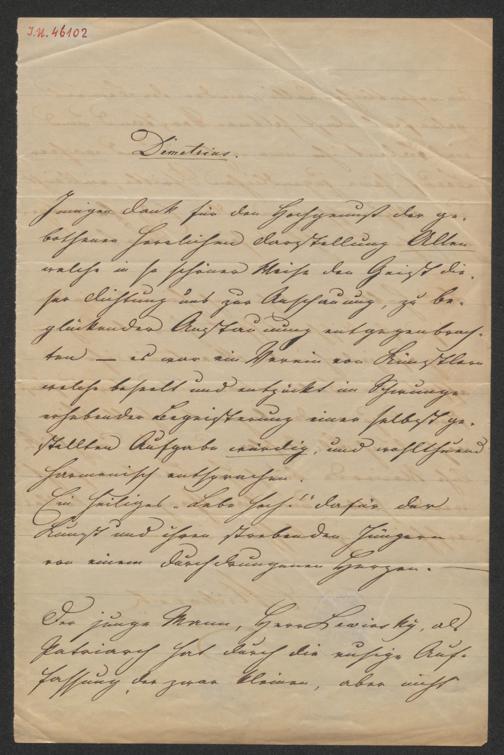 I.N. 46102
Demetrius.
Innigen Dank für den Hochgenuß der ge-
bothenen herrlichen Darstellung Allen
welche in so schöner Weise den Geist die-
ser Dichtung uns zur Anschauung, zu be-
glückender Anstaunung entgegenbrach-
ten — es war ein Verein von Künstlern
welche beseelt und entzückt im Schwunge
erhebender Begeisterung einer selbst ge-
stellten Aufgabe würdig, und wohlthuend
harmonisch entsprachen.
Ein heiliges „Lebe hoch!" dafür der
Kunst und ihren strebenden Jüngern
von einem durchdrungenen Herzen. —
Der junge Mann, Herr Lewinsky, als
Patriarch hat durch die ruhige Auf-
fassung der zwar kleinen, aber nicht